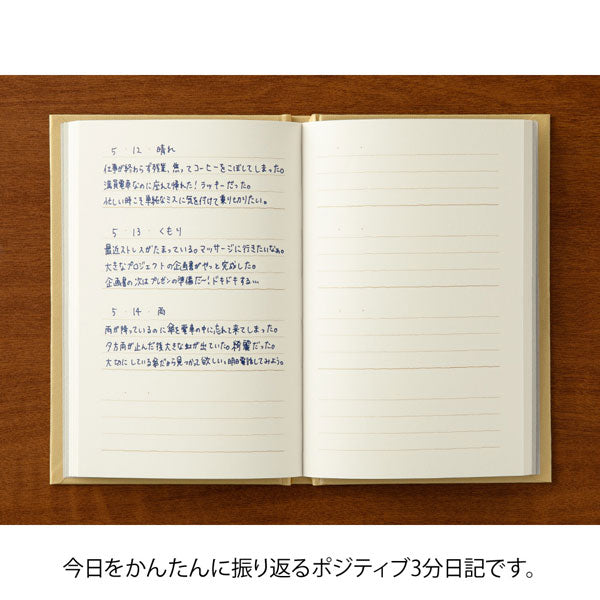 5・12・晴れ
仕事が終わらず残業、焦ってコーヒーをこぼしてしまった。
満員電車なのに座って帰れた！ラッキーだった。
忙しい時こそ単純なミスに気を付けて乗り切りたい。
5・13・くもり
最近ストレスがたまっている。マッサージに行きたいなぁ。
大きなプロジェクトの企画書がやっと完成した。
企画書の次はプレゼンの準備だー！ドキドキする…
5・14・雨
雨が降っているのに傘を電車の中に忘れて来てしまった。
夕方雨が止んだ後大きな虹が出ていた。綺麗だった。
大切にしている傘だから見つかって欲しい、明日電話してみよう。
今日をかんたんに振り返るポジティブ3分日記です。